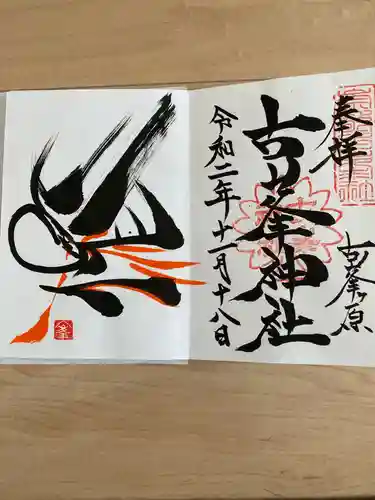 奉拝
古峯ヶ原
古峯神社
令和二年十一月十八日